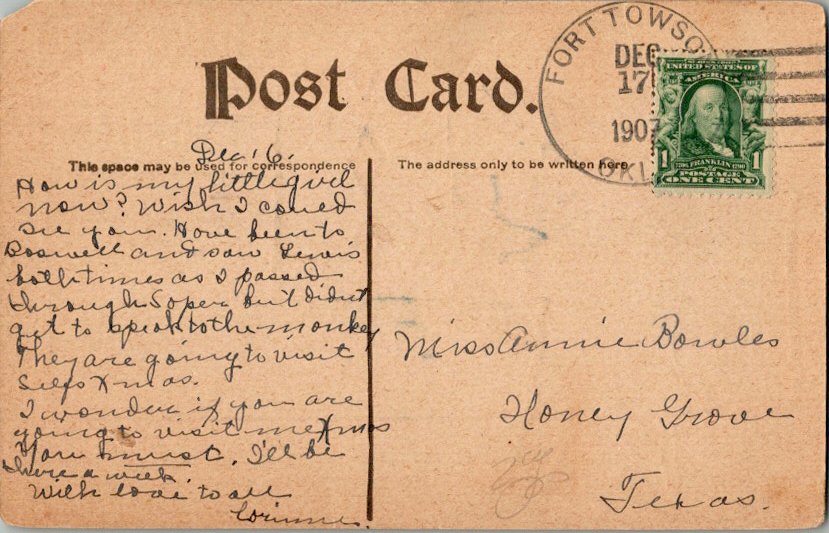 Post Card.
FORT TOWSO
DEC
17
1907
OKL
UNITED STATES OF
AMERICA
1 FRANKLIN 1
POSTAGE
ONE CENT
This space may be used for correspondence
The address only to be written here
Dec. 16.
How is my little girl
now? Wish I could
see you. Have been to
Boswell and saw Lewis
both times as I passed
through Soper but didn't
get to speak to the monkey
They are going to visit
Xmas.
I wonder if you are
going to visit me Xmas
You must. I'll be
there a week.
With love to all
Corinne.
Miss Annie Bowles
Honey Grove
Texas.